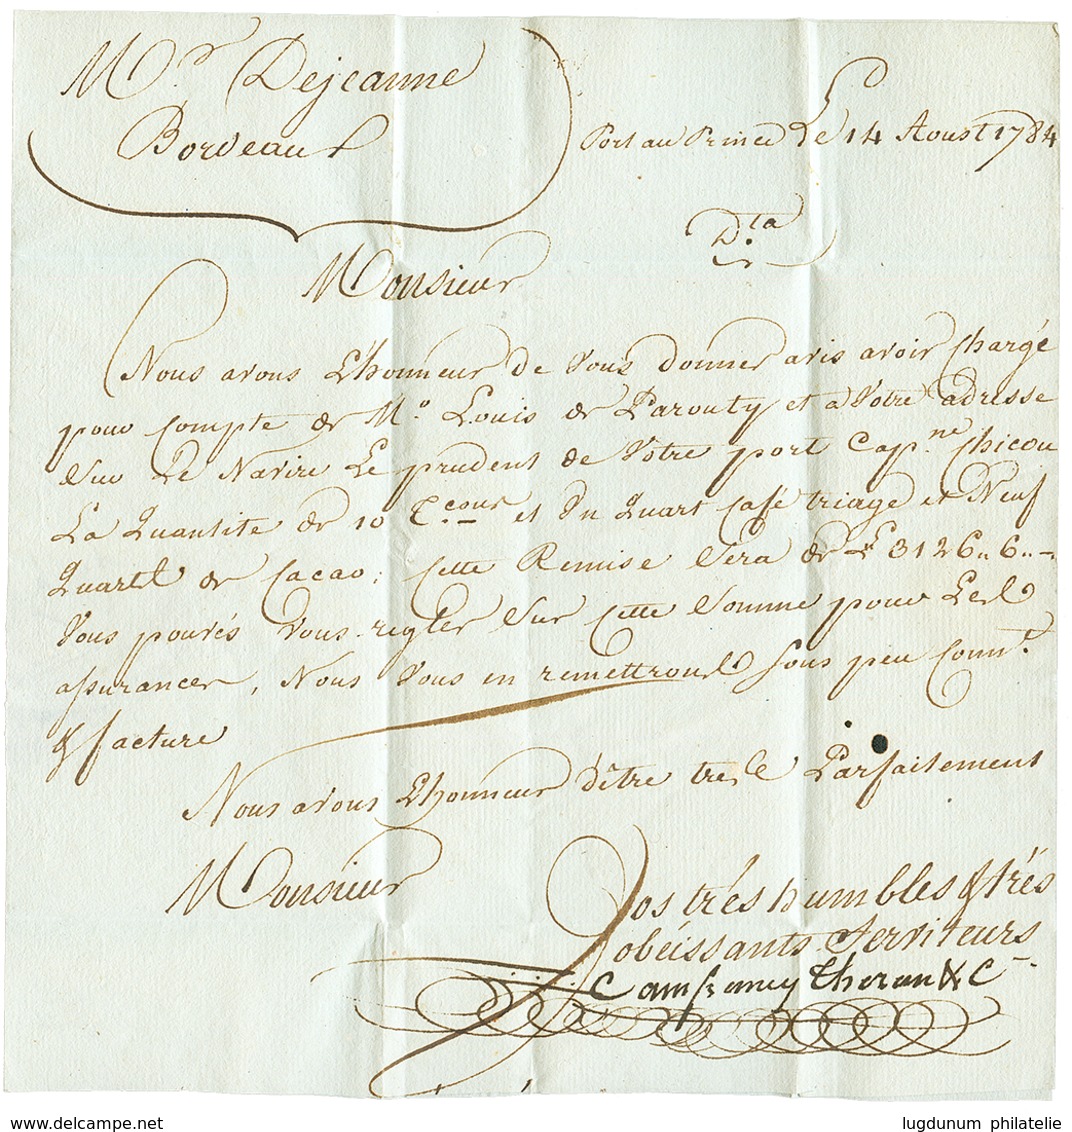 Mr. Dejeanne
Bordeaux
Port au Prince Le 14 Aoust 1784
Dta
Monsieur
Nous avons L'honneur de Vous donner avis avoir Chargé
pour Compte de Mr. Louis de Parouty et a Votre adresse
Sur Le Navire Le prudent de Votre port Capne. Chicou
La Quantite de 10 et Un Quart Café triage et Neuf
Quarts de Cacao; Cette Remise Sera de £ 3126.. 6..
Vous pourés Vous regler Sur Cette Somme pour Les
assurances, Nous Vous en remettrons Sous peu Connt.
& facture
Nous avons L'honneur d'être tres Parfaitement
Monsieur
Vos trés humbles & trés
obéissants Serviteurs
Theron & C
delcampe.net
lugdunum philatelie